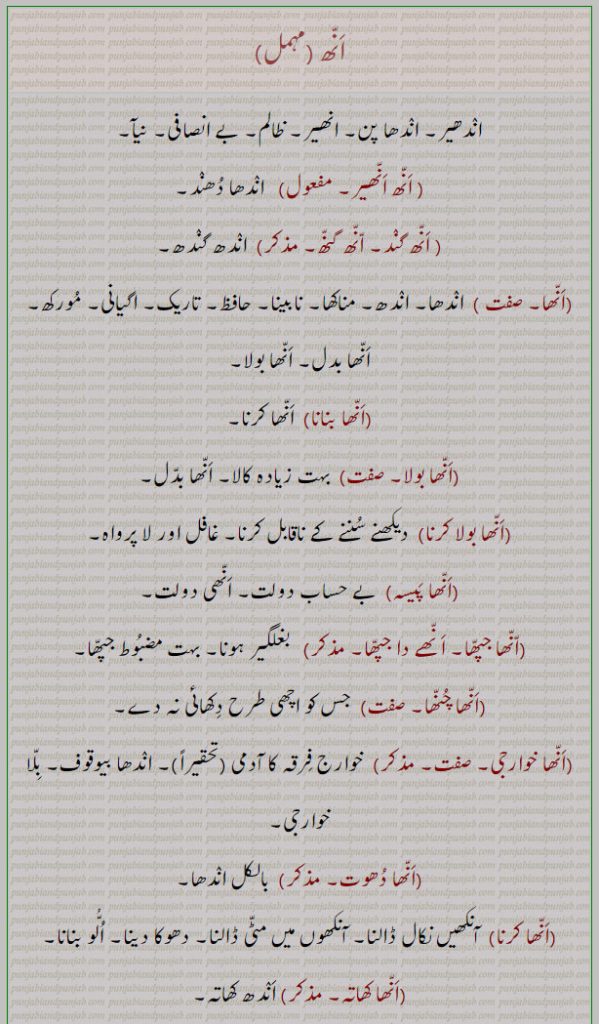 اَنّھ (مہمل)
انْدھیر۔ انْدھا پن۔ انھیر۔ ظالم۔ بے انصافی۔ نیآ۔
( اَنّھ اَنّھیر۔ مفعول) انْدھا دُھنْد۔
( اَنّھ گنْد۔ اَنّھ گنّھ۔ مذکر) انْدھ گنْدھ۔
(اَنّھا۔ صفت ) انْدھا۔ انْدھ۔ مناکھا۔ نابینا۔ حافظ۔ تاریک۔ اگیانی۔ مُورکھ۔
اَنّھا بدل۔ اَنّھا بولا۔
(اَنّھا بنانا) اَنّھا کرنا۔
(اَنّھا بولا۔ صفت) بہت زیادہ کالا۔ اَنّھا بدّل۔
(اَنّھا بولا کرنا) دیکھنے سُننے کے ناقابل کرنا۔ غافل اور لا پرواہ۔
(اَنّھا پَیسہ) بے حساب دولت۔ اَنّھی دولت۔
(اَنّھا جپّھا۔ اَنّھے دا جپّھا۔ مذکر) بغلگیر ہونا۔ بہت مضبُوط جپّھا۔
(اَنّھا چُنّھا۔ صفت) جس کو اچھی طرح دِکھائی نہ دے۔
(اَنّھا خوارجی۔ صفت۔ مذکر) خوارج فِرقہ کا آدمی (تحقیراً)۔ انْدھا بیوقوف۔ بِلّا
خوارجی۔
(اَنّھا دُھوت۔ مذکر) بالکل انْدھا۔
(اَنّھا کرنا) آنکھیں نکال ڈالنا۔ آنکھوں میں مٹّی ڈالنا۔ دھوکا دینا۔ اُلُّو بنانا۔
(اَنّھا کھاتہ۔ مذکر) اَنْدھ کھاتہ۔